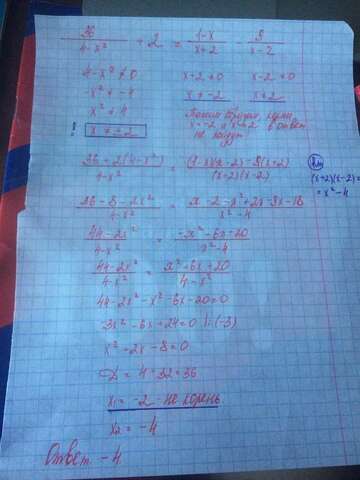 36/(4-x²) + 2 = (1-x)/(x+2) - 9/(x-2)
4-x² ≠ 0 x+2 ≠ 0 x-2 ≠ 0
-x² ≠ -4 x ≠ -2 x ≠ 2
x² ≠ 4
x ≠ ±2
x = -2 и x = 2 в ответ
не
(36+2(4-x²))/(4-x²) = ((1-x)(x-2)-9(x+2))/((x+2)(x-2))
(x+2)(x-2) =
= x²-4
(36+8-2x²)/(4-x²) = (x-2-x²+2x-9x-18)/(x²-4)
(44-2x²)/(4-x²) = (-x²-6x-20)/(x²-4)
(44-2x²)/(4-x²) = (x²+6x+20)/(4-x²)
44-2x²-x²-6x-20=0
-3x²-6x+24=0 |:(-3)
x²+2x-8=0
D = 4+32=36
x₁ = -2 не корень
x₂ = -4
Ответ -4